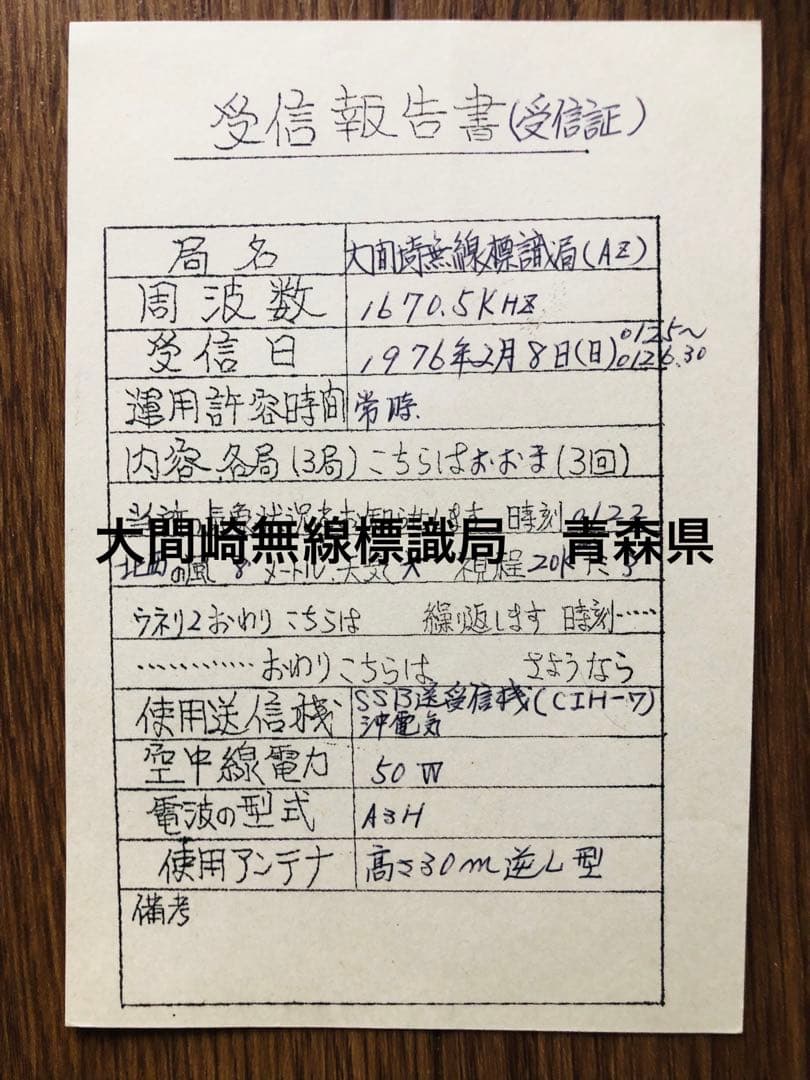 受信報告書(受信証)
局名 大間埼無線標識局(AZ)
周波数 1670.5KHZ
受信日 1976年2月8日(日) 0125〜0126.30
運用許容時間 常時.
内容.各局(3局)こちらはおおま(3回)
時刻0122
大間崎無線標識局 青森県
の風 8メートル. 天気 視程20K
ウネリ2おわりこちらは 繰り返します 時刻……
…………おわりこちらは さようなら
使用送信機 SSB送受信機(CIH-7)
沖電気
空中線電力 50W
電波の型式 A3H
使用アンテナ 高さ30m逆L型
備考